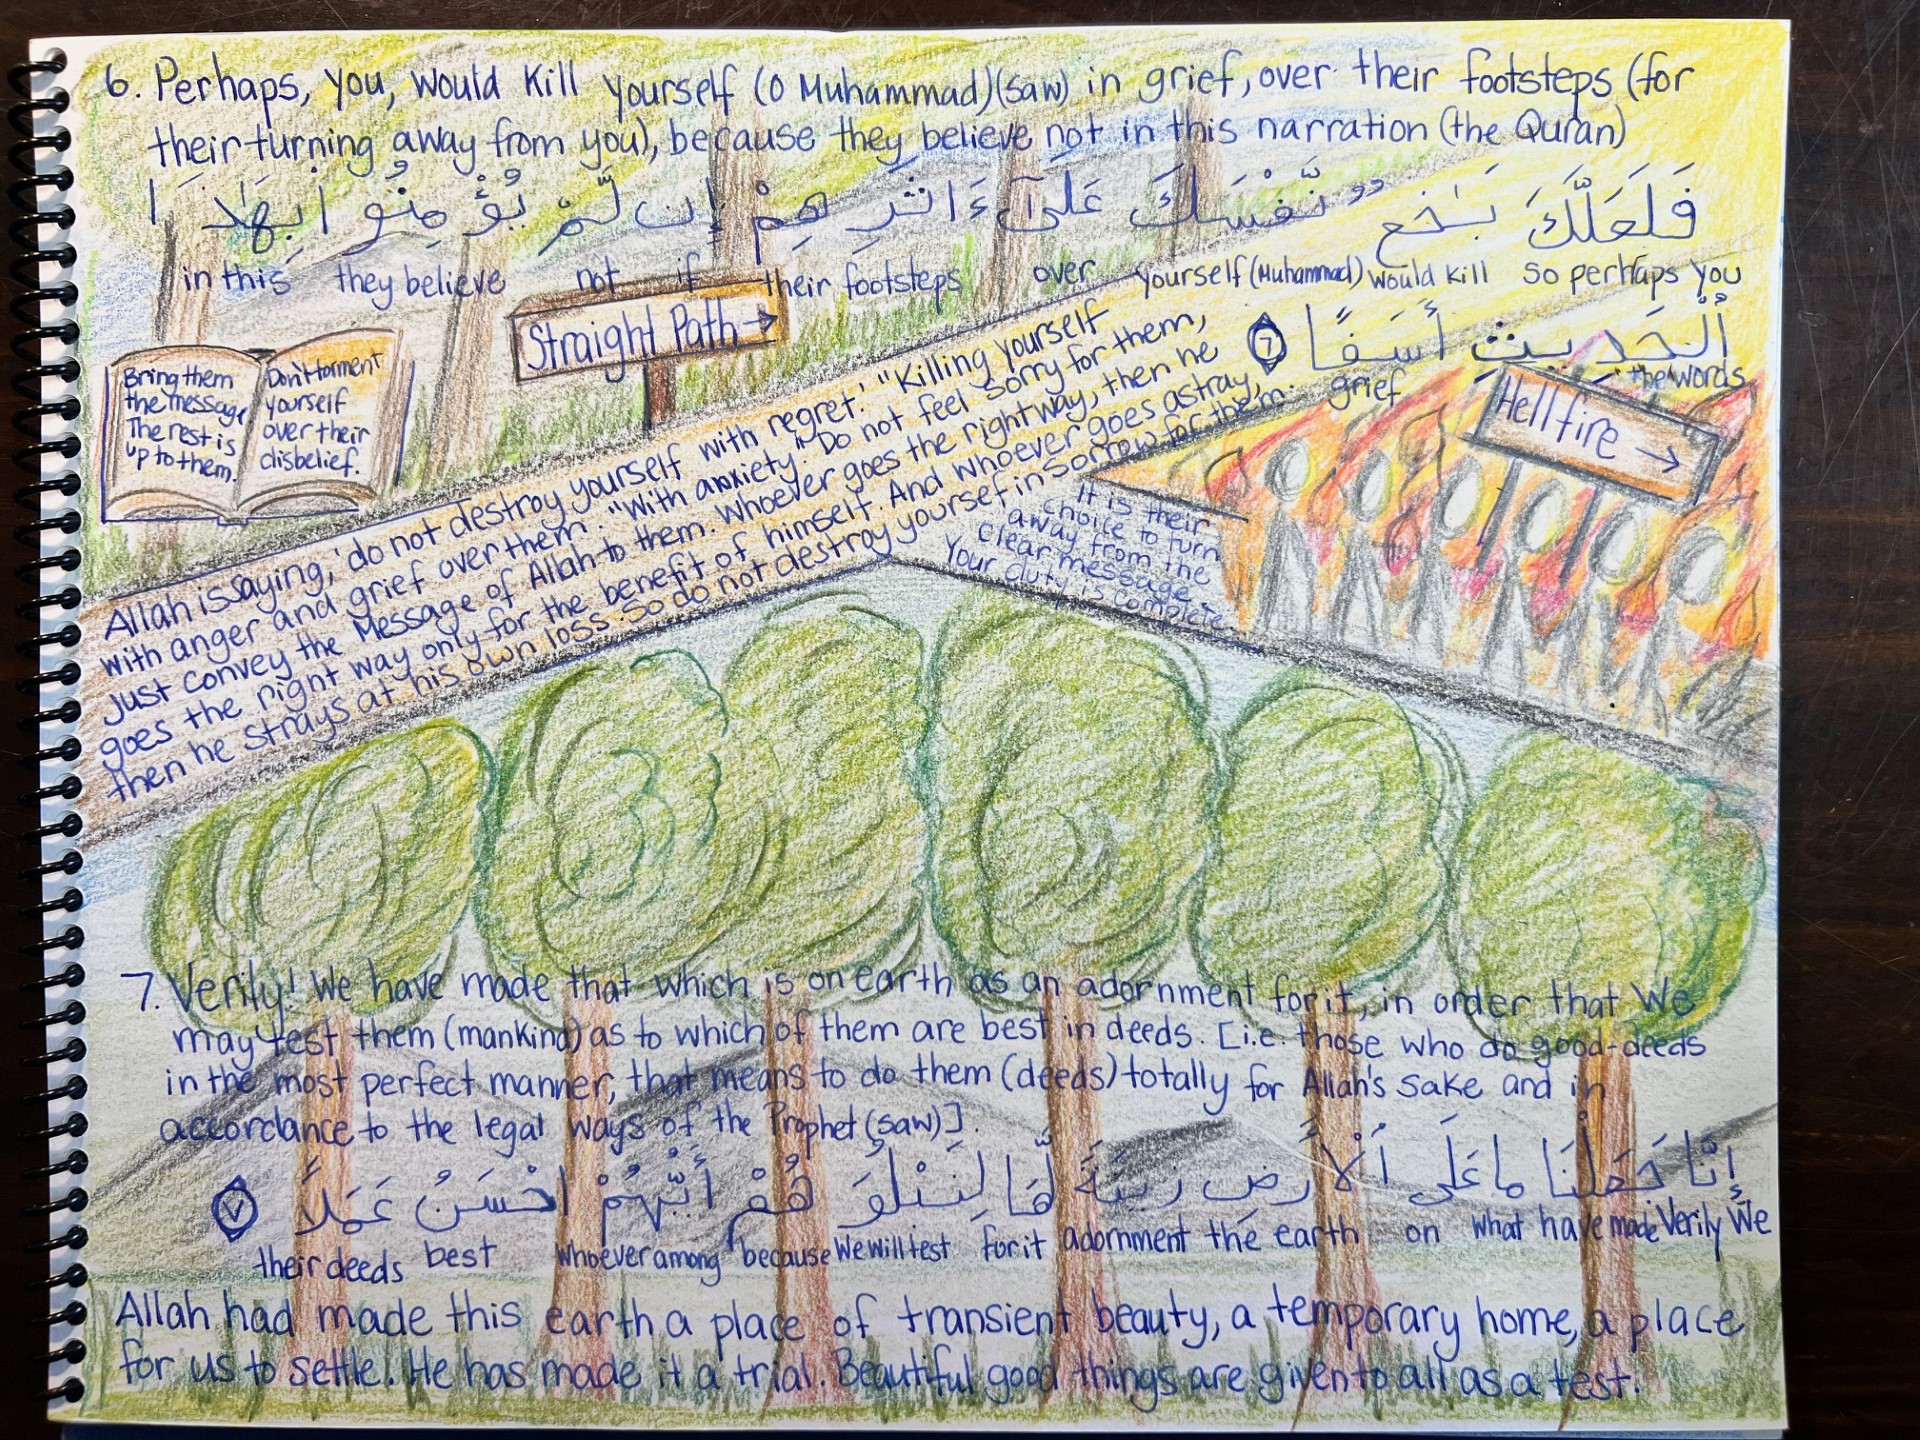 6. Perhaps, you, would kill yourself (O Muhammad)(saw) in grief, over their footsteps (for
their turning away from you), because they believe not in this narration (the Quran)
فَلَعَلَّكَ بَـٰخِع نَّفْسَكَ عَلَىٰٓ ءَاثَـٰرِهِمْ إِن لَّمْ يُؤْمِنُوا۟ بِهَـٰذَا
in this they believe not if their footsteps over yourself (Muhammad) would kill so perhaps you
ٱلْحَدِيثِ أَسَفًا
the words grief
Straight Path →
Bring them
the message
The rest is
up to them.
Don't torment
yourself
over their
disbelief.
Hellfire →
Allah is saying, 'do not destroy yourself with regret.' "Killing yourself
with anger and grief over them." "With anxiety." "Do not feel sorry for them,
just convey the Message of Allah to them. Whoever goes the right way, then he
goes the right way only for the benefit of himself. And whoever goes astray,
then he strays at his own loss. So do not destroy yourself in sorrow for them.
It is their
choice to turn
away from the
clear message.
Your duty is complete.
7. Verily! We have made that which is on earth as an adornment for it, in order that We
may test them (mankind) as to which of them are best in deeds. [i.e. those who do good-deeds
in the most perfect manner, that means to do them (deeds) totally for Allah's sake and in
accordance to the legal ways of the Prophet (saw)].
إِنَّا جَعَلْنَا مَا عَلَى ٱلْأَرْضِ زِينَةً لَّهَا لِنَبْلُوَهُمْ أَيُّهُمْ أَحْسَنُ عَمَلًا ٧
their deeds best whoever among because We will test for it adornment the earth on what have made Verily We
Allah had made this earth a place of transient beauty, a temporary home, a place
for us to settle. He has made it a trial. Beautiful good things are given to all as a test.